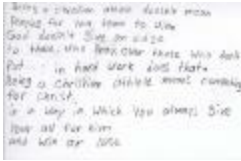 Being a christian athlete doesn't mean
Praying for your team to win
God doesn't give an edge
to those who pray over those who don't
Put in hard work does that
Being a Christian athlete means competing
for Christ,
in a way in which you always give
your all for him
and win or lose